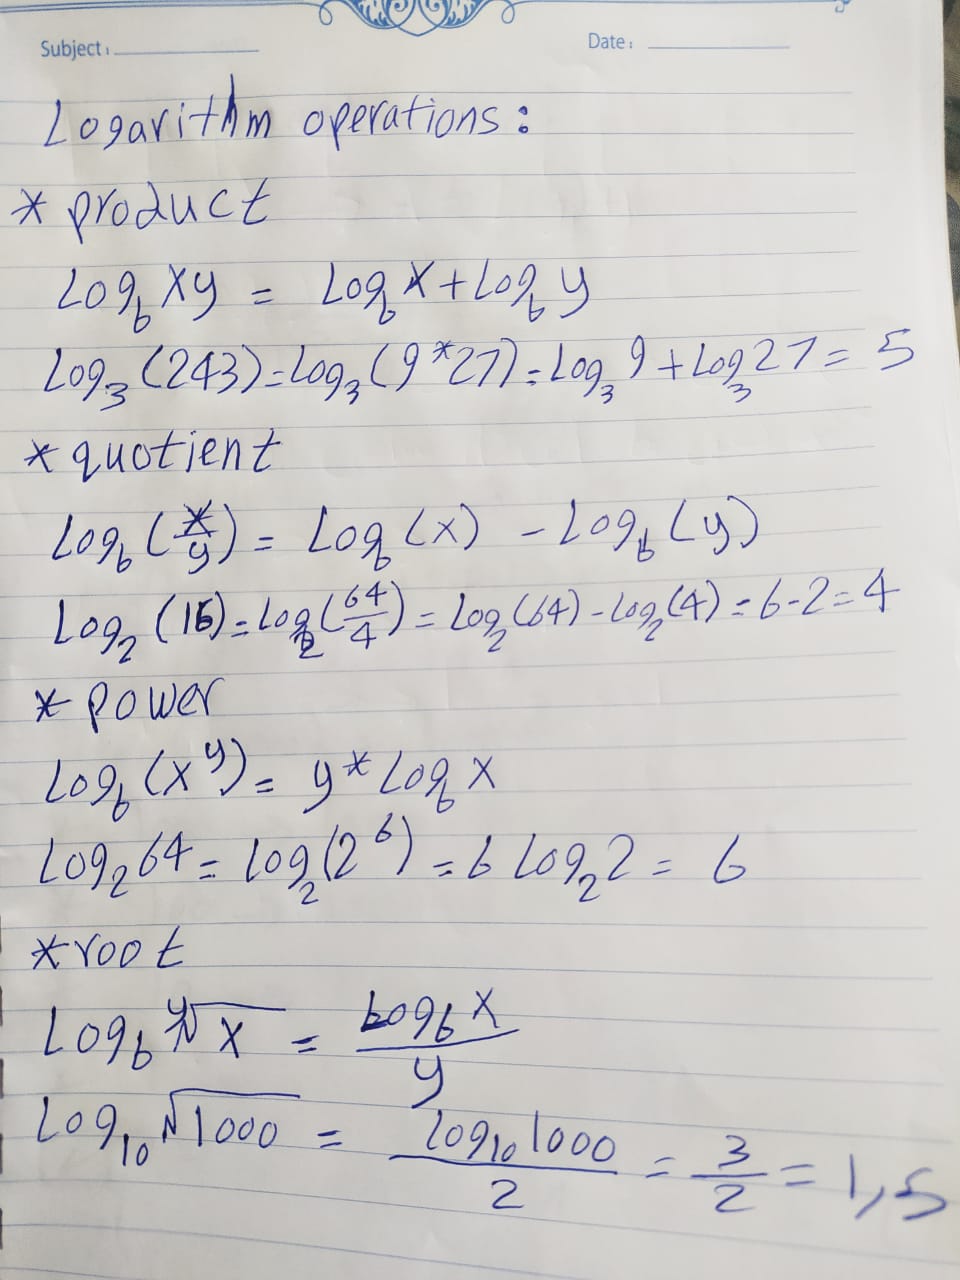 Subject:
Date:
Logarithm operations:
* product
Log_b xy = Log_b x + Log_b y
Log_3 (243) = Log_3 (9*27) = Log_3 9 + Log_3 27 = 5
* quotient
Log_b (x/y) = Log_b (x) - Log_b (y)
Log_2 (16) = Log_2 (64/4) = Log_2 (64) - Log_2 (4) = 6-2 = 4
* power
Log_b (x^y) = y* Log_b x
Log_2 64 = Log_2 (2^6) = 6 Log_2 2 = 6
* root
Log_b ʸ√x = Log_b x / y
Log_10 √1000 = Log_10 1000 / 2 = 3/2 = 1,5